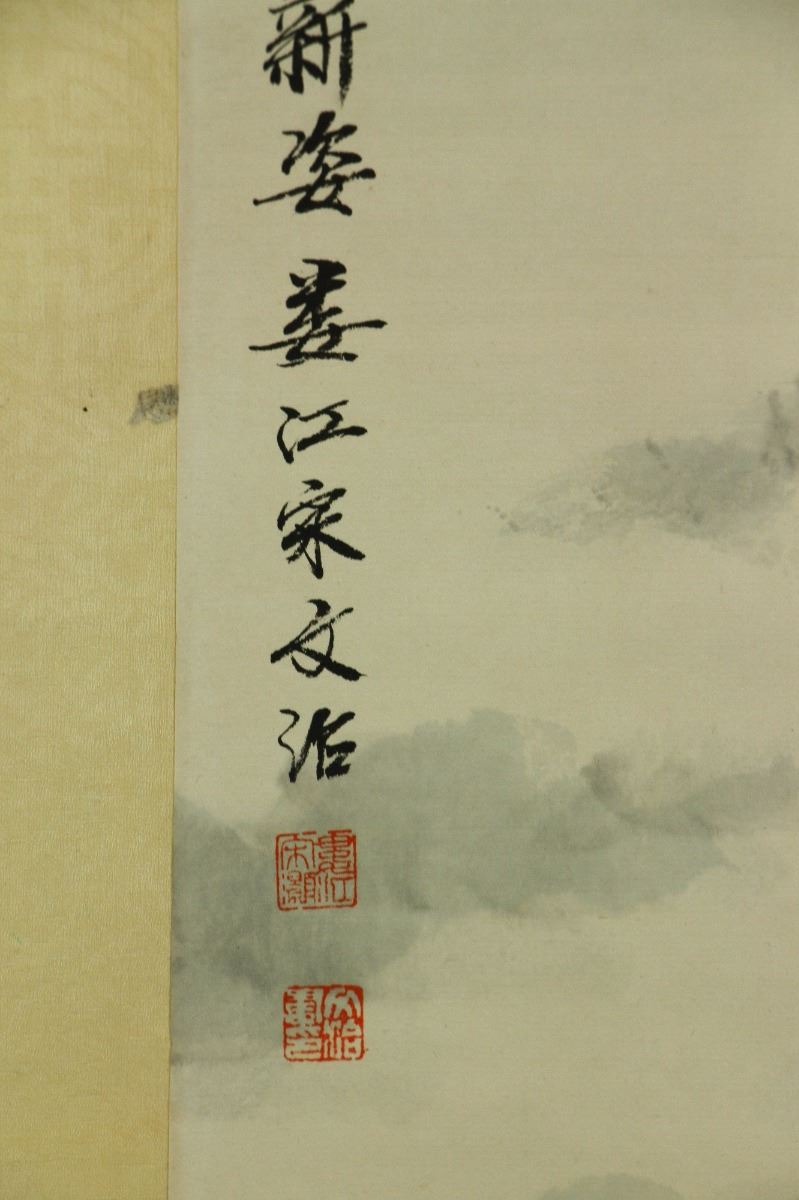 新姿娄江宋文治